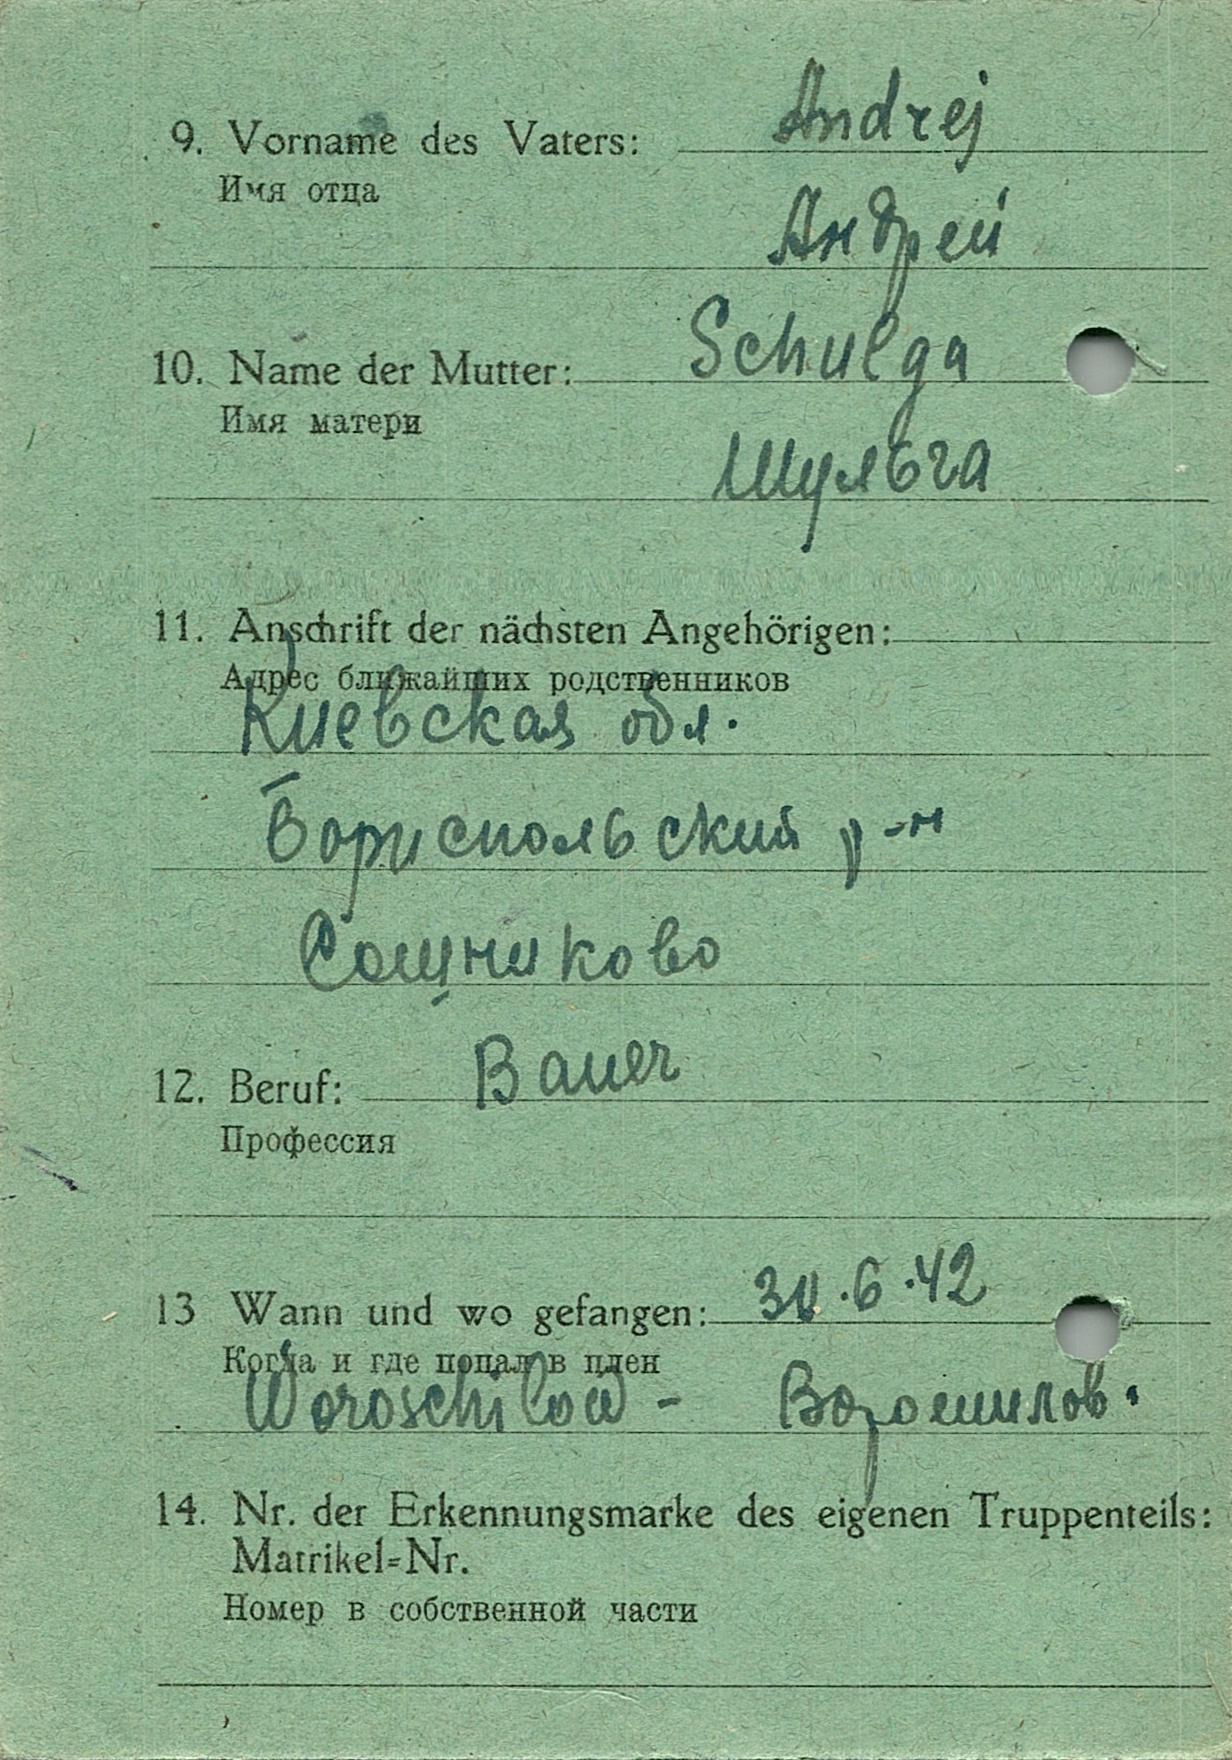 9. Vorname des Vaters: Andrej
Имя отца
Андрей
10. Name der Mutter: Schulga
Имя матери
Шульга
11. Anschrift der nächsten Angehörigen:
Адрес ближайших родственников
Киевская обл.
Бориспольский р-н
Сошниково
12. Beruf: Bauer
Профессия
13 Wann und wo gefangen: 30.6.42
Когда и где попал в плен
Woroschilow - Ворошилов.
14. Nr. der Erkennungsmarke des eigenen Truppenteils:
Matrikel=Nr.
Номер в собственной части